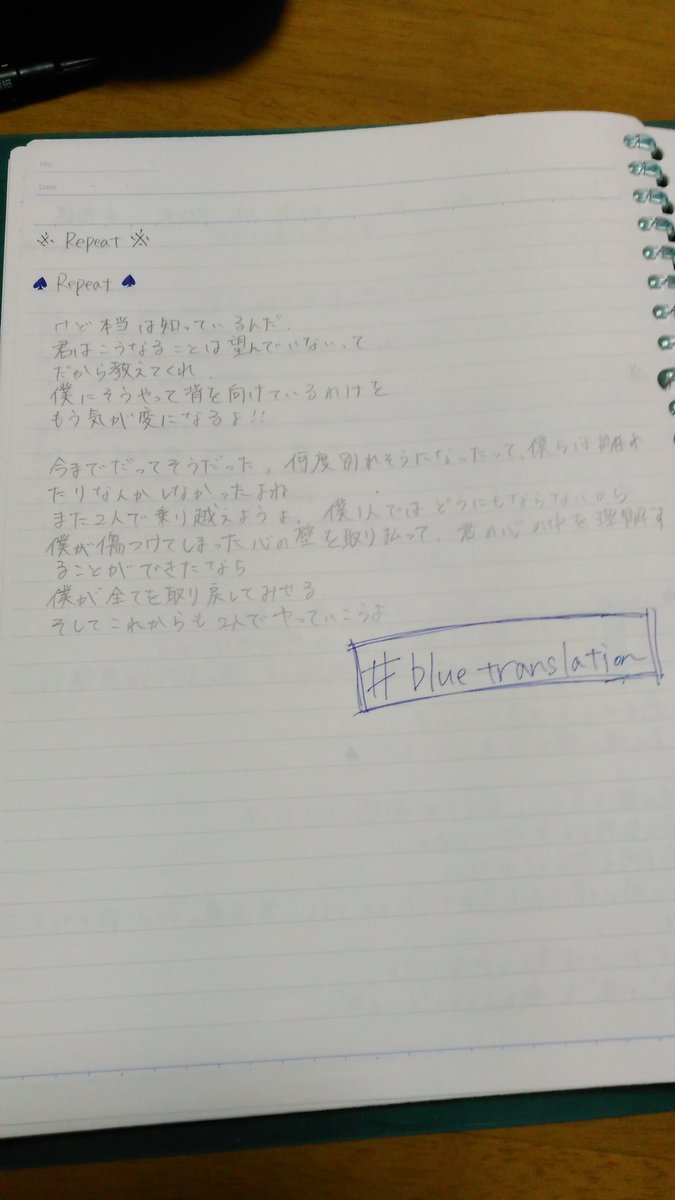 No.
Date
※ Repeat ※
♠ Repeat ♠
けど本当は知っているんだ.
君はこうなることは望んでいないって
だから教えてくれ.
僕にそうやって背を向けているわけを
もう気が変になるよ!!
今までだってそうだった, 何度別れそうになったって、僕らは離れ
たりなんかしなかったよね
また2人で乗り越えようよ. 僕1人ではどうにもならないから
僕が傷つけてしまった心の壁を取り払って, 君の心の中を理解す
ることができたなら
僕が全てを取り戻してみせる.
そしてこれからも2人でやっていこうよ
#blue translation